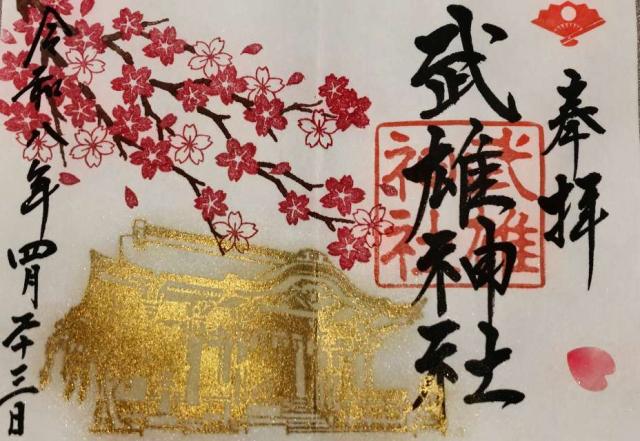 奉拝
武雄神社
武雄
神社
令和八年四月二十三日